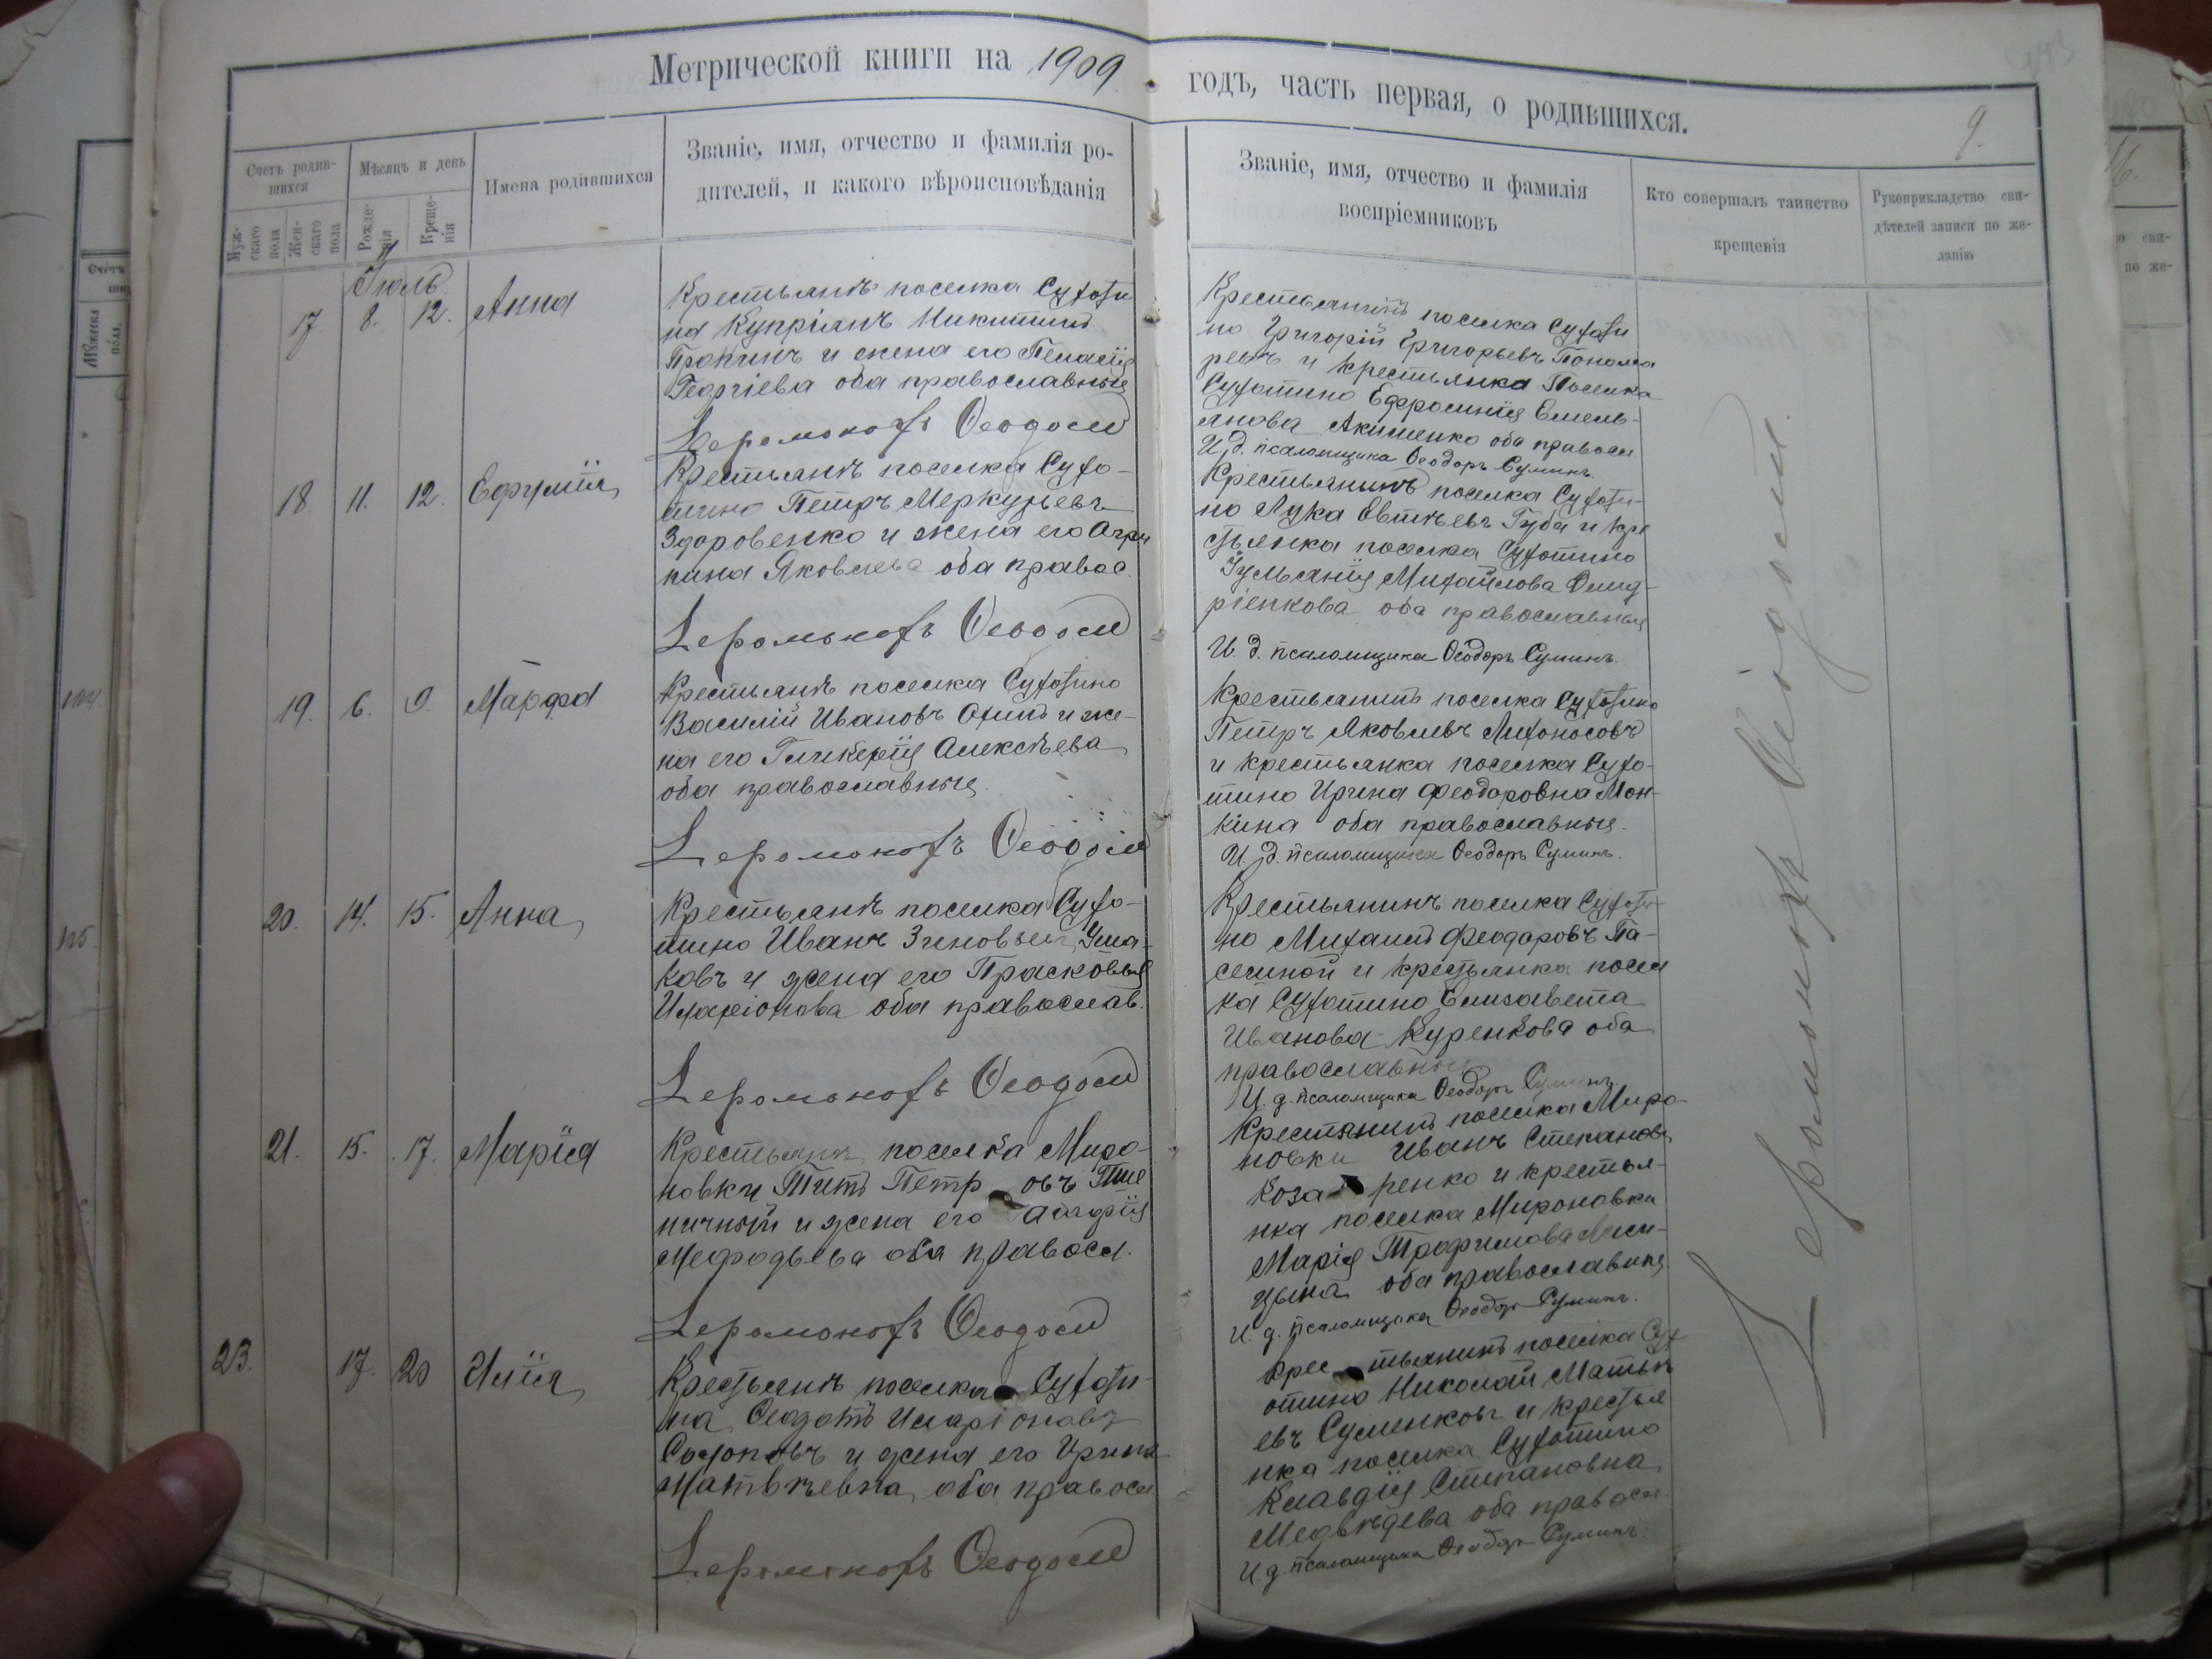 Метрической книги на 1909 годъ, часть первая, о родившихся.
9.
Счетъ родив-
шихся
Муж-
скаго
пола
Жен-
скаго
пола
Мѣсяцъ и день
Рожде-
нія
Креще-
нія
Имена родившихся
Званіе, имя, отчество и фамилія ро-
дителей, и какого вѣроисповѣданія
Званіе, имя, отчество и фамилія
воспріемниковъ
Кто совершалъ таинство
крещенія
Рукоприкладство сви-
дѣтелей записи по же-
ланію
Іюль
17 8. 12. Анна
Крестьянинъ поселка Сухоти
на Купріанъ Никитинъ
Пронинъ и жена его Пелагія
Георгіева оба православные
Іеромонахъ Ѳеодосій
Крестьянинъ поселка Сухоти
но Григорій Григорьевъ Понома
ревъ и крестьянка Поселка
Сухотино Ефросинія Емель-
янова Акименко оба правосл
И. д. псаломщика Ѳеодоръ Суминъ.
18. 11. 12. Ефимія
Крестьянинъ поселка Сухо-
тино Петръ Меркурьевъ
Здоровенко и жена его Агри
пина Яковлева оба правос.
Іеромонахъ Ѳеодосій
Крестьянинъ поселка Сухоти-
но Лука Евтѣевъ Губа и кре
стьянка поселка Сухотино
Іульянія Михайлова
оба православныя
И. д. псаломщика Ѳеодоръ Суминъ.
19. 6. 9. Марфа
Крестьянинъ поселка Сухотино
Василій Ивановъ и же-
на его Гликерія Алексѣева
оба православныя.
Іеромонахъ Ѳеодосій
Крестьянинъ поселка Сухотино
Петръ Яковлевъ Лихоносовъ
и крестьянка поселка Сухо-
тино Ирина Феодоровна Мон-
кина оба православныя.
И. д. псаломщика Ѳеодоръ Суминъ.
20. 14. 15. Анна
Крестьянинъ поселка Сухо-
тино Иванъ Зиновьевъ
ковъ и жена его Прасковья
Иларіонова оба православ.
Іеромонахъ Ѳеодосій
Крестьянинъ поселка Сухоти-
но Михаилъ Феодоровъ Па-
сечной и крестьянка посел
ка Сухотино Елизавета
Иванова Куренкова оба
православныя
И. д. псаломщика Ѳеодоръ Суминъ.
21. 15. 17. Марія
Крестьянинъ поселка Миро-
новки Титъ Петровъ Пше
ничный и жена его Агафія
Мефодьева оба правосл.
Іеромонахъ Ѳеодосій
Крестянинъ поселка Миро-
новки Иванъ Степановъ
Козаренко и крестья-
нка поселка Мироновки
Марія Трофимова Лиси-
цына оба православныя
И. д. псаломщика Ѳеодоръ Суминъ.
23. 17. 20 Илія
Крестьянинъ поселка Сухоти-
на Ѳеодотъ Иларіоновъ
и жена его Ирина
Матвѣевна оба правосл
Іеромонахъ Ѳеодосій
Крестьянинъ поселка Сух
отино Николай Матвѣ
евъ Суменковъ и крестья
нка поселка Сухотино
Клавдія Степановна
Медвѣдева оба правосл.
И. д. псаломщика Ѳеодоръ Суминъ.
Іеромонахъ Ѳеодосій